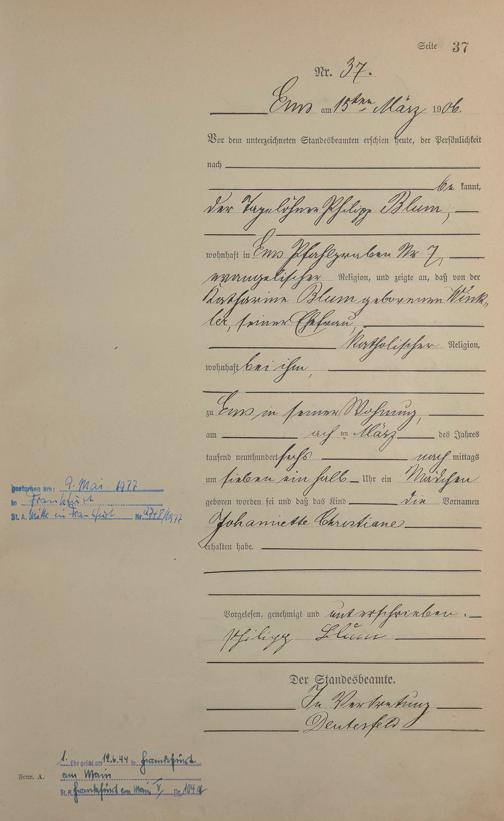 Seite 37
Nr. 37.
Ems am 15ten März 1906.
Vor dem unterzeichneten Standesbeamten erschien heute, der Persönlichkeit
nach
be kannt,
der Tagelöhner Philipp Blum,
wohnhaft in Ems Pfahlgraben Nr 7,
evangelischer Religion, und zeigte an, daß von der
Katharine Blum geborenen Wink-
ler, seiner Ehefrau,
katholischer Religion,
wohnhaft bei ihm,
zu Ems in seiner Wohnung,
am ach ten März des Jahres
tausend neunhundert sechs nach mittags
um sieben ein halb Uhr ein Mädchen
geboren worden sei und daß das Kind die Vornamen
Johannette Christiane
erhalten habe.
Vorgelesen, genehmigt und unterschrieben.
Philipp Blum
Der Standesbeamte.
In Vertretung
gestorben am: 9. Mai 1977
in Frankfurt
St. A. Mitte in Frankfurt Nr.
1. Ehe geschl. am 19.6.44 in Frankfurt
am Main
St. A. Frankfurt am Main V, Nr.
Form. A.